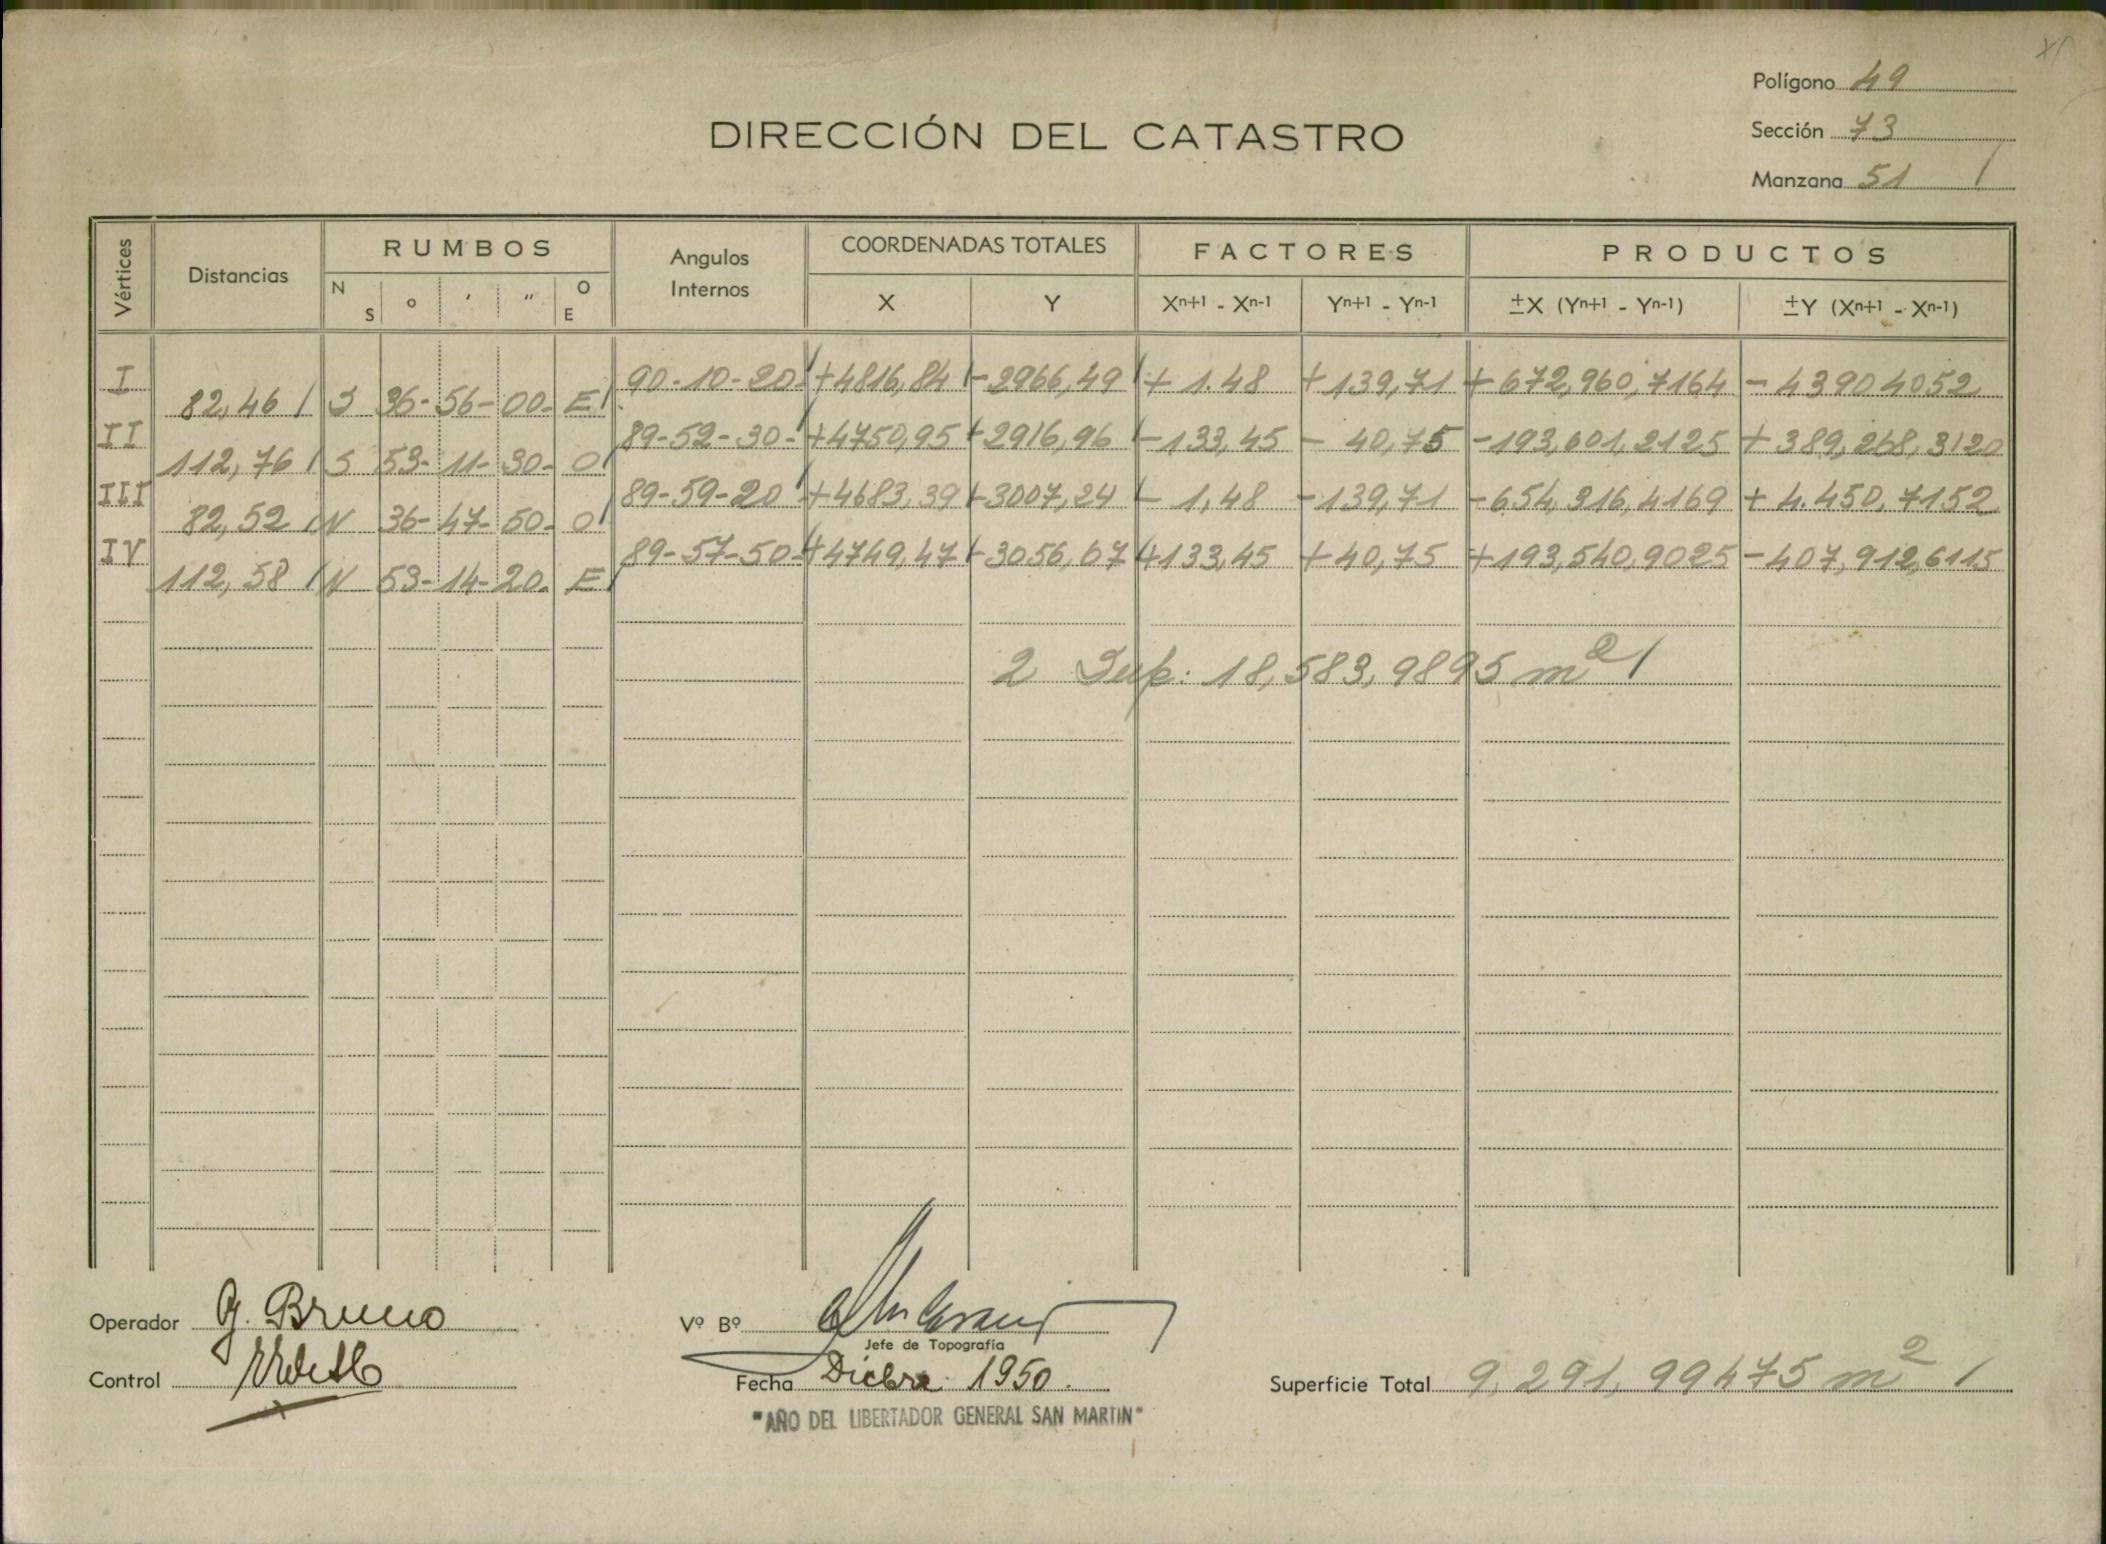 Polígono 49
DIRECCIÓN DEL CATASTRO
Sección 73
Manzana 51 /
Vértices Distancias RUMBOS Angulos Internos COORDENADAS TOTALES FACTORES PRODUCTOS
N S o ′ ″ O E X Y Xn+1 - Xn-1 Yn+1 - Yn-1 ±X (Yn+1 - Yn-1) ±Y (Xn+1 - Xn-1)
I 90-10-20 +4816,84 -2966,49 + 1.48 +139,71 +672,960,7164 -43904052
82,46 S 36-56-00- E
II 89-52-30- +4750,95 -2916,96 -133,45 - 40,75 -193,601,2125 +389,268,3120
112,76 S 53-11-30- O
III 89-59-20 +4683,39 -3007,24 - 1,48 -139,71 -654,316,4169 + 4.450,7152
82,52 N 36-47-50- O
IV 89-57-50- +4749,47 -3056,67 +133,45 +40,75 +193,540,9025 -407,912,6115
112,58 N 53-14-20. E
2 Sup: 18,583,9895 m2 /
Operador G. Bruno
Vº Bº
Jefe de Topografía
Control
Fecha Dicbre. 1950.
Superficie Total 9,291,99475 m2 /
"AÑO DEL LIBERTADOR GENERAL SAN MARTIN"